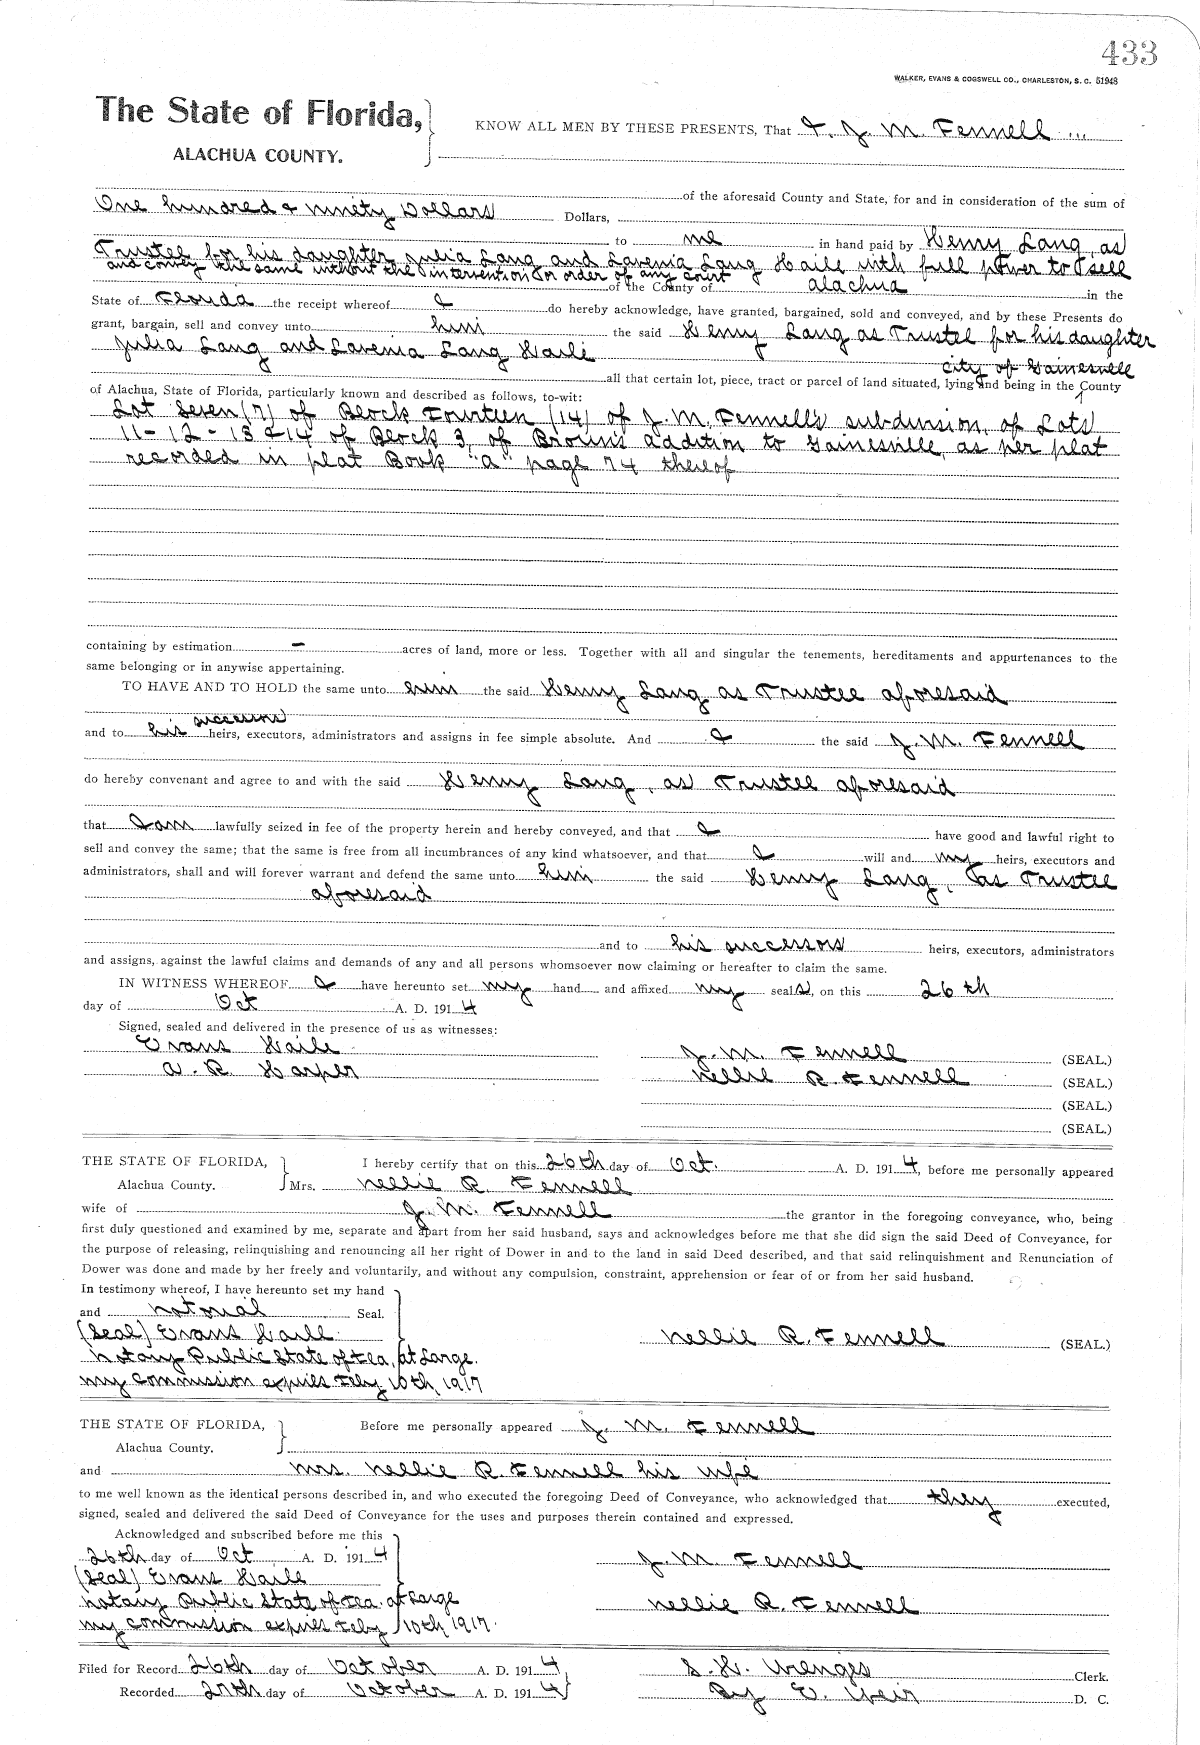 433
WALKER, EVANS & COGSWELL CO., CHARLESTON, S. C. 51948
The State of Florida,
ALACHUA COUNTY.
KNOW ALL MEN BY THESE PRESENTS, That I, J. M. Fennell
of the aforesaid County and State, for and in consideration of the sum of
One hundred & ninety Dollars Dollars,
to me in hand paid by Henry Lang as
Trustee for his daughter Julia Lang and Lavenia Lang Haile with full power to sell
and convey the same without the intervention or order of any court
of the County of Alachua in the
State of Florida the receipt whereof I do hereby acknowledge, have granted, bargained, sold and conveyed, and by these Presents do
grant, bargain, sell and convey unto him the said Henry Lang as Trustee for his daughter
Julia Lang and Lavenia Lang Haile
city of Gainesville
all that certain lot, piece, tract or parcel of land situated, lying and being in the County
of Alachua, State of Florida, particularly known and described as follows, to-wit:
Lot Seven (7) of Block Fourteen (14) of J. M. Fennell's subdivision, of Lots
11-12-13 & 14 of Block 3, of Brown's addition to Gainesville, as per plat
recorded in plat Book "A" page 74 thereof
containing by estimation - acres of land, more or less. Together with all and singular the tenements, hereditaments and appurtenances to the
same belonging or in anywise appertaining.
TO HAVE AND TO HOLD the same unto him the said Henry Lang as Trustee aforesaid
successors
and to his heirs, executors, administrators and assigns in fee simple absolute. And I the said J. M. Fennell
do hereby convenant and agree to and with the said Henry Lang, as Trustee aforesaid
that I am lawfully seized in fee of the property herein and hereby conveyed, and that I have good and lawful right to
sell and convey the same; that the same is free from all incumbrances of any kind whatsoever, and that I will and my heirs, executors and
administrators, shall and will forever warrant and defend the same unto him the said Henry Lang, as Trustee
aforesaid
and to his successors heirs, executors, administrators
and assigns, against the lawful claims and demands of any and all persons whomsoever now claiming or hereafter to claim the same.
IN WITNESS WHEREOF I have hereunto set my hand and affixed my seals, on this 26th
day of Oct A. D. 1914
Signed, sealed and delivered in the presence of us as witnesses:
Evans Haile J. M. Fennell (SEAL.)
W. R. Harper Nellie R. Fennell (SEAL.)
(SEAL.)
(SEAL.)
THE STATE OF FLORIDA, I hereby certify that on this 26th day of Oct. A. D. 1914, before me personally appeared
Alachua County. Mrs. Nellie R. Fennell
wife of J. M. Fennell the grantor in the foregoing conveyance, who, being
first duly questioned and examined by me, separate and apart from her said husband, says and acknowledges before me that she did sign the said Deed of Conveyance, for
the purpose of releasing, relinquishing and renouncing all her right of Dower in and to the land in said Deed described, and that said relinquishment and Renunciation of
Dower was done and made by her freely and voluntarily, and without any compulsion, constraint, apprehension or fear of or from her said husband.
In testimony whereof, I have hereunto set my hand
and notorial Seal.
(Seal) Evans Haile Nellie R. Fennell (SEAL.)
Notary Public State of Fla, at Large.
my commission expires Feby 10th, 1917
THE STATE OF FLORIDA, Before me personally appeared J. M. Fennell
Alachua County.
and Mrs. Nellie R. Fennell his wife
to me well known as the identical persons described in, and who executed the foregoing Deed of Conveyance, who acknowledged that they executed,
signed, sealed and delivered the said Deed of Conveyance for the uses and purposes therein contained and expressed.
Acknowledged and subscribed before me this
26th day of Oct A. D. 1914 J. M. Fennell
(Seal) Evans Haile
Notary Public State of Fla. at Large Nellie R. Fennell
my commission expires Feby 10th 1917.
Filed for Record 26th day of October A. D. 1914 S. H. Wienges Clerk.
Recorded 27th day of October A. D. 1914 By E. Weir D. C.